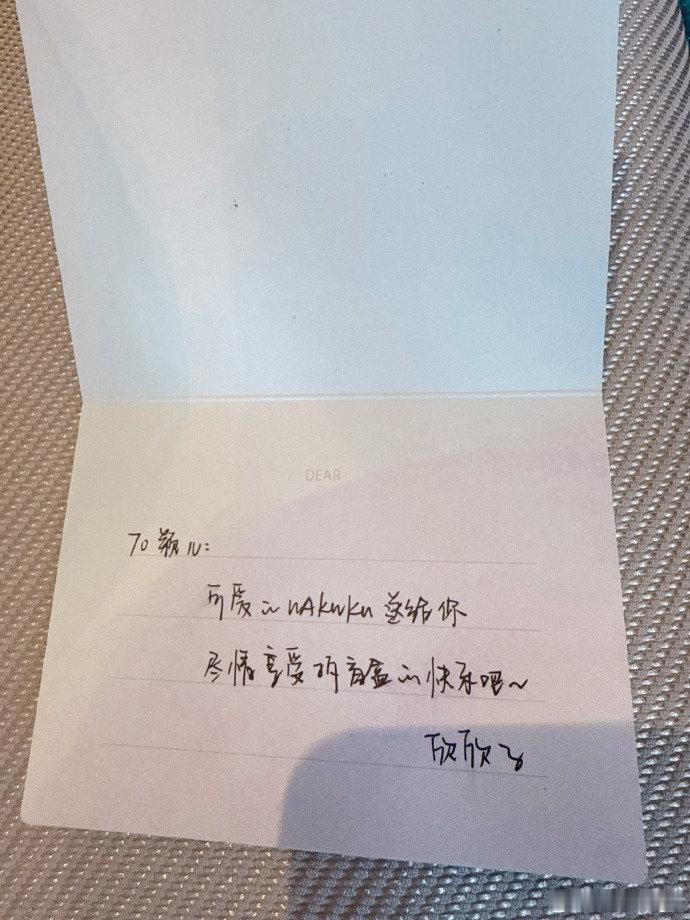 DEAR
To 颖儿:
可爱的 WAKUKU 送给你
尽情享受拆盲盒的快乐吧~
欣欣子